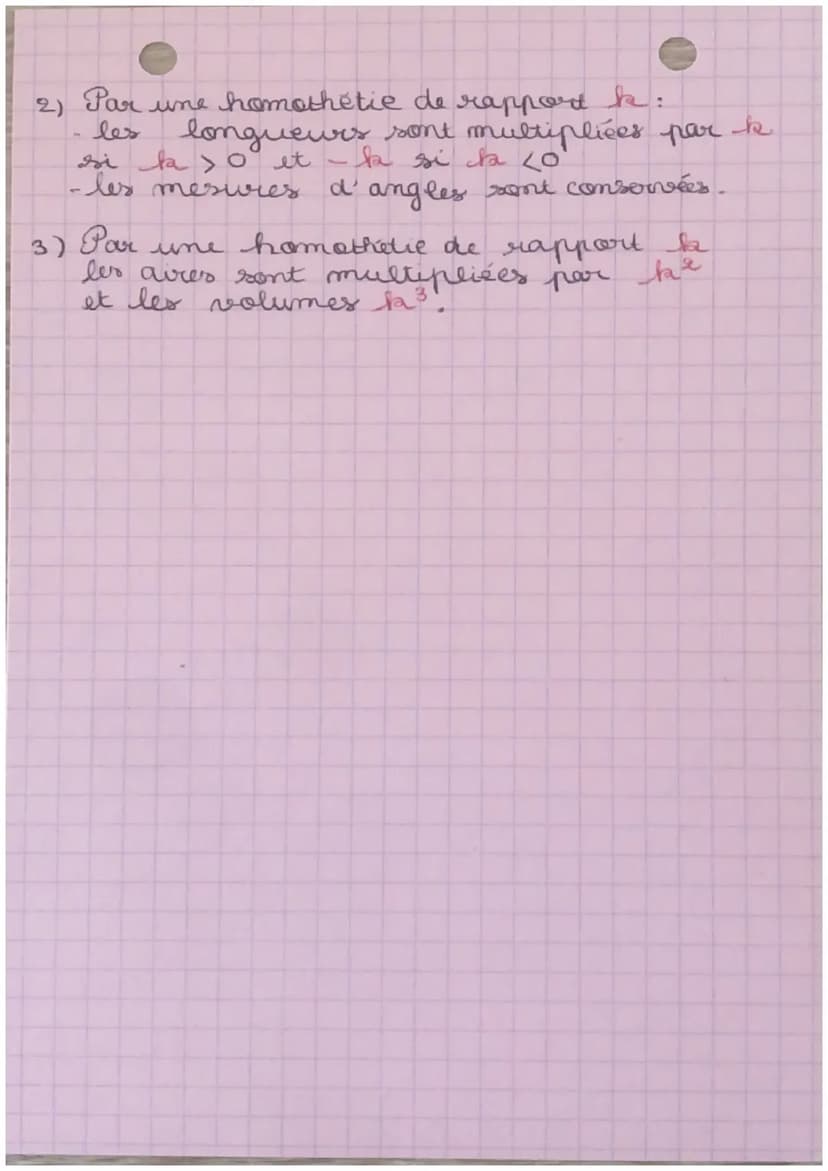 2) Par une homothétie de rapport k :
- les longueurs sont multipliées par k
si k > 0 et - k si k < 0
- les mesures d'angles sont conservées.
3) Par une homothétie de rapport k
les aires sont multipliées par k²
et les volumes k³.